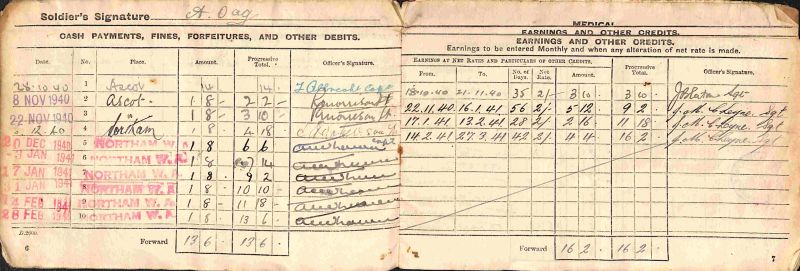 Soldier's Signature A. Dag
CASH PAYMENTS, FINES, FORFEITURES, AND OTHER DEBITS.
Date. No. Place. Amount. Progressive Total. Officer's Signature.
28.10.40 1 Ascot 14 14 Capt
8 NOV 1940 2 Ascot 1 8 - 2 2 -
22 NOV 1940 3 " 1 8 - 3 10
12.40 4 Northam 1 8 4 18
20 DEC 1940 5 NORTHAM W.A. 1 8 6 6 Capt
JAN 194 6 NORTHAM W.A. 1 8 14
17 JAN 1941 7 NORTHAM W.A. 1 8 9 2
1 JAN 194 8 NORTHAM W.A. 1 8 10 10 -
14 FEB 194 9 NORTHAM W.A. 1 8 - 11 18 -
28 FEB 194 10 NORTHAM W.A. 1 8 - 13 6
Forward 13 6 13 6
D.2900.
6
MEDICAL
EARNINGS AND OTHER CREDITS.
EARNINGS AND OTHER CREDITS.
Earnings to be entered Monthly and when any alteration of net rate is made.
EARNINGS AT NET RATES AND PARTICULARS OF OTHER CREDITS.
From. To. No. of Days. Net Rate. Amount. Progressive Total. Officer's Signature.
18.10.40 21.11.40 35 2/- 3 10 3 10 Sgt
22.11.40 16.1.41 56 2/- 5 12 9 2 Cheyne Sgt
17.1.41 13.2.41 28 2/- 2 16 11 18 Cheyne Sgt
14.2.41 27.3.41 42 2/- 4 4 16 2 Cheyne Sgt
Forward 16 2 16 2
7